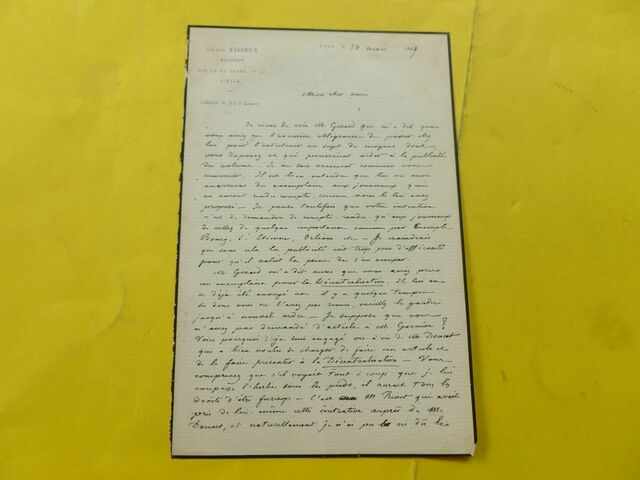 CLAIR TISSEUR
LYON
LYON, le 10 mars 1869
Cabinet de 2 à 5 heures
Mon cher ami
Je viens de voir M. Gérard qui m'a dit que
vous aviez eu l'excessive obligeance de passer chez
lui pour l'entretenir au sujet du moyens dont
vous disposez et qui pourraient aider à la publicité
du volume. Je ne sais vraiment comment vous
remercier. Il est bien entendu que lui ou moi
enverrons des exemplaires aux journaux qui
en auront rendu compte, comme vous le lui avez
proposé. Je pense toutefois que votre intention
n'est de demander de compte-rendu qu'aux journaux
de villes de quelque importance comme par exemple
Bourg, St Etienne, Orléans etc. Je craindrais
que sans cela la publicité eût trop peu d'efficacité
pour qu'il valût la peine de s'en occuper.
M. Gérard m'a dit aussi que vous aviez
un exemplaire pour la Décentralisation. Il lui en
a déjà été envoyé un, il y a quelque temps.
Si donc vous ne l'avez pas remis, veuillez le garder
jusqu'à nouvel ordre. Je suppose que vous
n'avez pas demandé d'article à M. Garnier ?
Voici pourquoi : je suis engagé vis-à-vis de M. Doucet
qui a bien voulu se charger de faire un article et
de le faire présenter à la Décentralisation. Vous
comprenez que s'il voyait tout à coup que je lui
coupasse l'herbe sous les pieds, il aurait tous les
droits d'être furieux. C'est M. Rivet qui avait
pris de lui-même cette initiative auprès de M.
Doucet, et naturellement je n'ai pu ni dû les